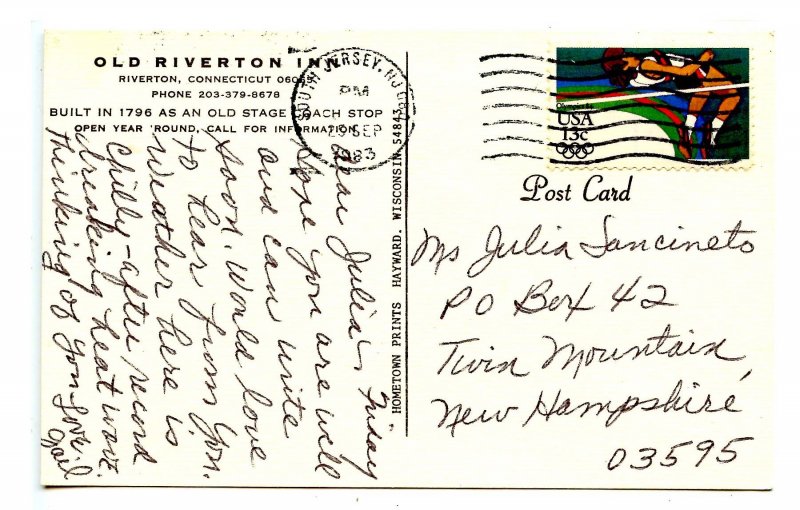 OLD RIVERTON INN
RIVERTON, CONNECTICUT 06065
PHONE 203-379-8678
BUILT IN 1796 AS AN OLD STAGE COACH STOP
OPEN YEAR 'ROUND, CALL FOR INFORMATION
Friday
Dear Julia -
Hope you are well
and can write
soon. Would love
to hear from you.
Weather here is
chilly - after record
breaking heat wave.
Thinking of you - Love,
Gail
HOMETOWN PRINTS HAYWARD, WISCONSIN 54843
SOUTH JERSEY, NJ
PM
SEP
1983
USA
13c
Post Card
Ms Julia Sancineto
PO Box 42
Twin Mountain,
New Hampshire
03595